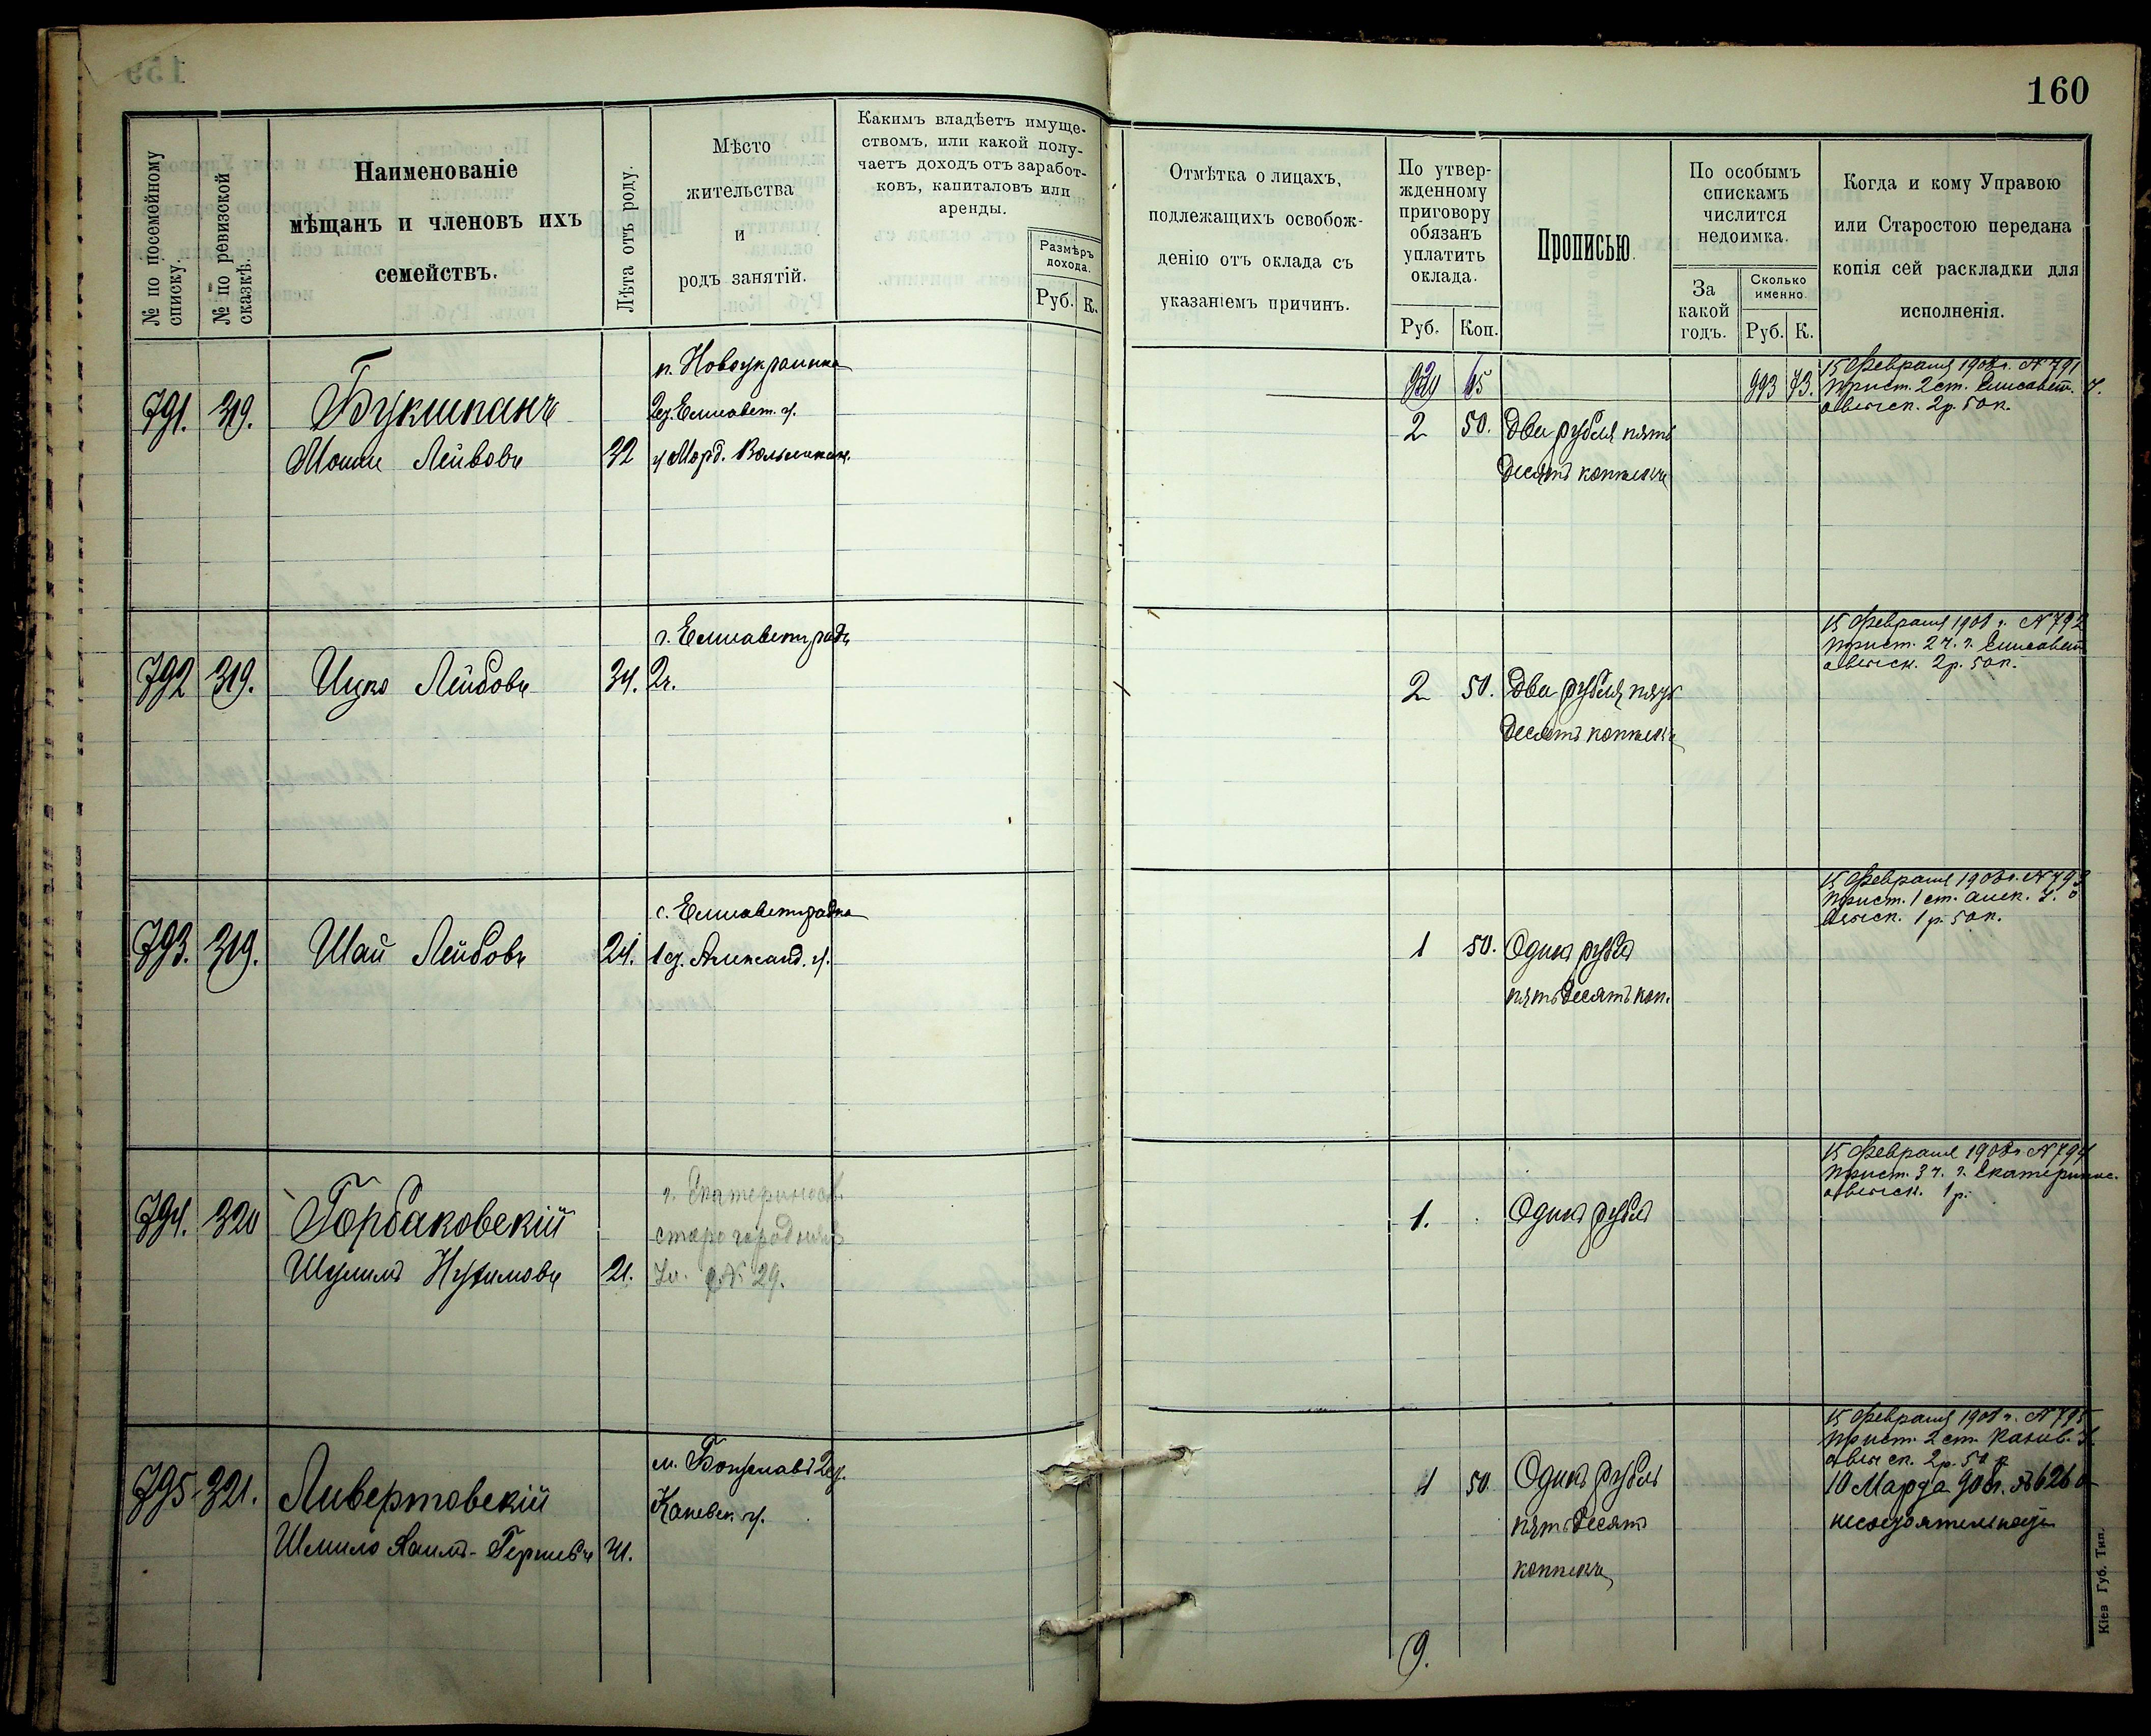 160
№ по посемейному списку.
№ по ревизской сказкѣ.
Наименованіе
мѣщанъ и членовъ ихъ
семействъ.
Лѣта отъ роду.
Мѣсто
жительства
и
родъ занятій.
Какимъ владѣетъ имуще-
ствомъ, или какой полу-
чаетъ доходъ отъ заработ-
ковъ, капиталовъ или
аренды.
Размѣръ
дохода.
Руб. К.
Отмѣтка о лицахъ,
подлежащихъ освобож-
денію отъ оклада съ
указаніемъ причинъ.
По утвер-
жденному
приговору
обязанъ
уплатить
оклада.
Руб. Коп.
Прописью.
По особымъ
спискамъ
числится
недоимка.
За
какой
годъ.
Сколько
именно.
Руб. К.
Когда и кому Управою
или Старостою передана
копія сей раскладки для
исполненія.
п. Новоукраинка
791. 319. Букшпанъ
2 Елисавет. у.
Мошко Лейбовъ 32
993 73.
15 Февраля 1908 г. № 791
Прист. 2 ст. Елисавет. У.
о взыск. 2 р. 50 к.
2 50. Два рубля пять
десятъ копѣекъ
г. Елисаветградъ
792 319. Ицко Лейбовъ 34. 2 ч.
2 50. Два рубля пять
десятъ копѣекъ
15 Февраля 1908 г. № 792
Прист. 2 ч. г. Елисавет
о взыск. 2 р. 50 к.
с. Елисаветградка
793. 319. Шая Лейбовъ 24. 1 Александ. у.
1 50. Одинъ рубль
пятьдесятъ коп.
15 Февраля 1908 г. № 793
Прист. 1 ст. Алек. У. о
взыск. 1 р. 50 к.
г. Екатеринослав.
794. 320 Горбаковскій
старогородняя
Шулимъ Нухимовъ 21. Ул. № 29.
1. Одинъ рубль
15 Февраля 1908 г. № 794
Прист. 3 ч. г. Екатеринос.
о взыск. 1 р.
м. Богуславъ
795 321. Ливертовскій
Каневск. у.
Шмило Хаимъ-Гершевъ 41.
1 50 Одинъ рубль
пятьдесятъ
копѣекъ
15 Февраля 1908 г. № 795
Прист. 2 ст. Канев. У.
о взыск. 2 р. 50 к
10 Марта 908 г. № 626 о
9.
Кіев Губ. Тип.